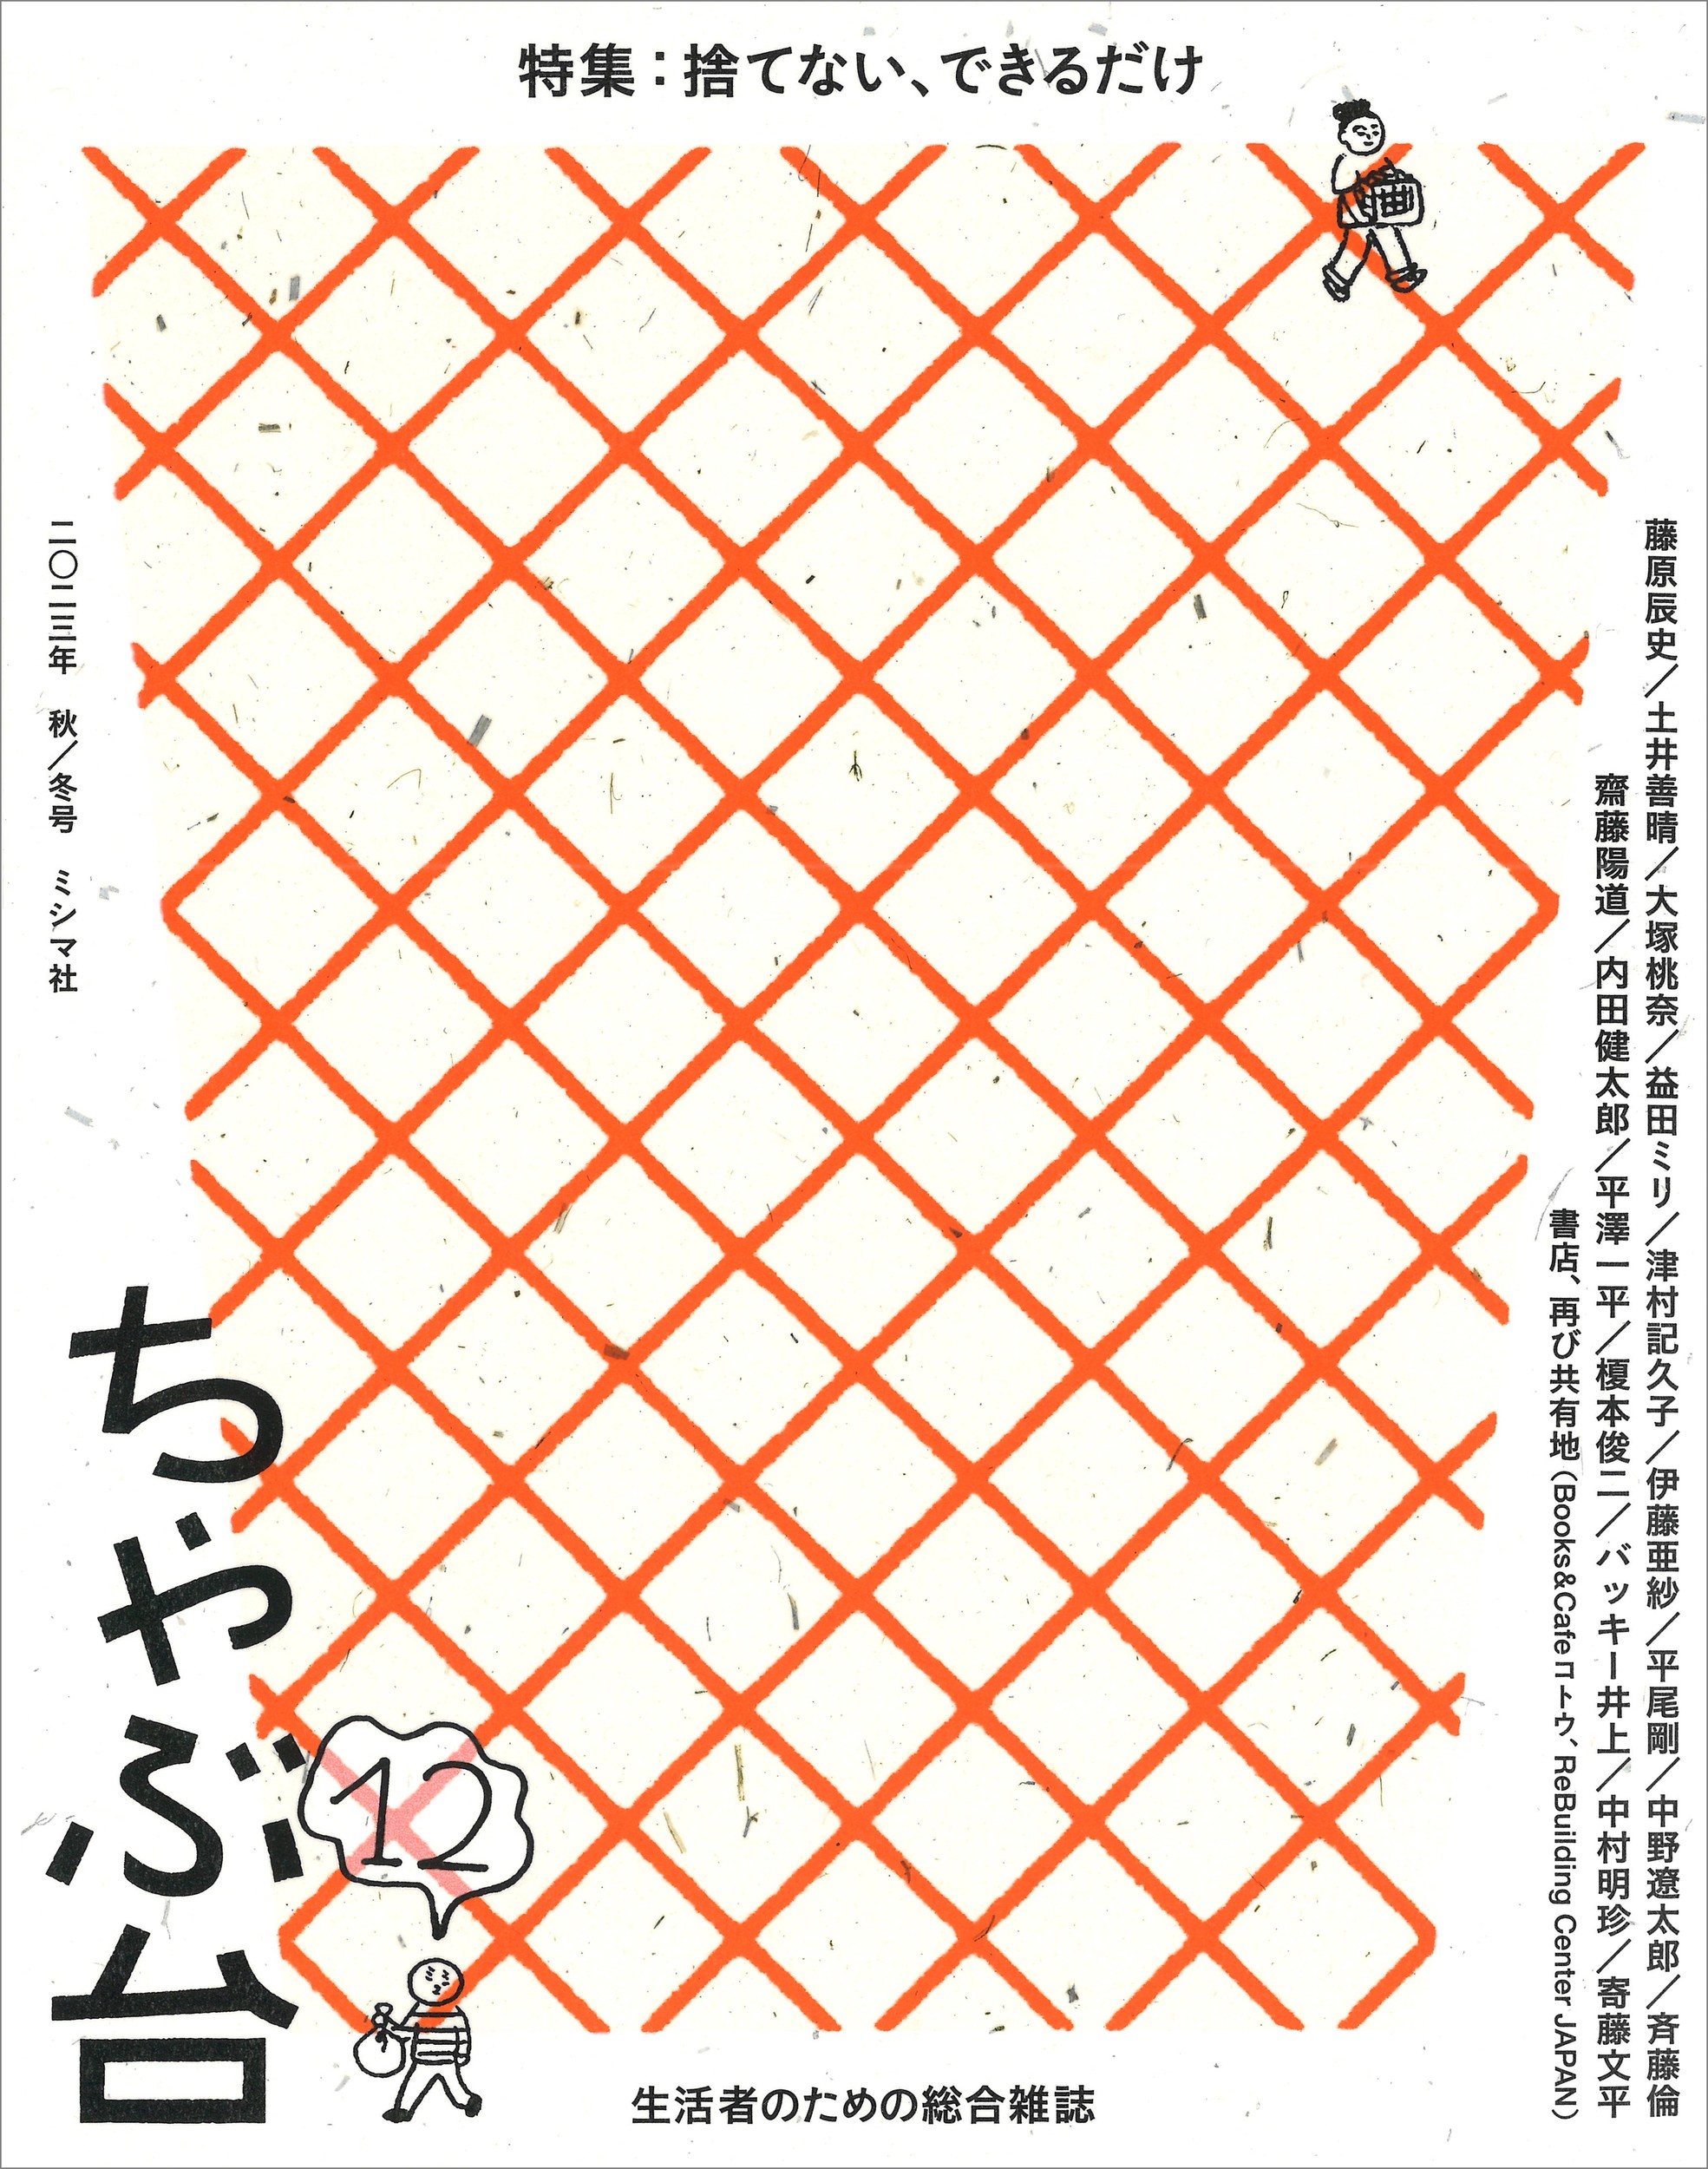 特集：捨てない、できるだけ
藤原辰史／土井善晴／大塚桃奈／益田ミリ／津村記久子／伊藤亜紗／平尾剛／中野遼太郎／斉藤倫
齋藤陽道／内田健太郎／平澤一平／榎本俊二／バッキー井上／中村明珍／寄藤文平
書店、再び共有地（Books&Cafe コトウ、ReBuilding Center JAPAN）
二〇二三年　秋／冬号　ミシマ社
ちゃぶ台
12
生活者のための総合雑誌